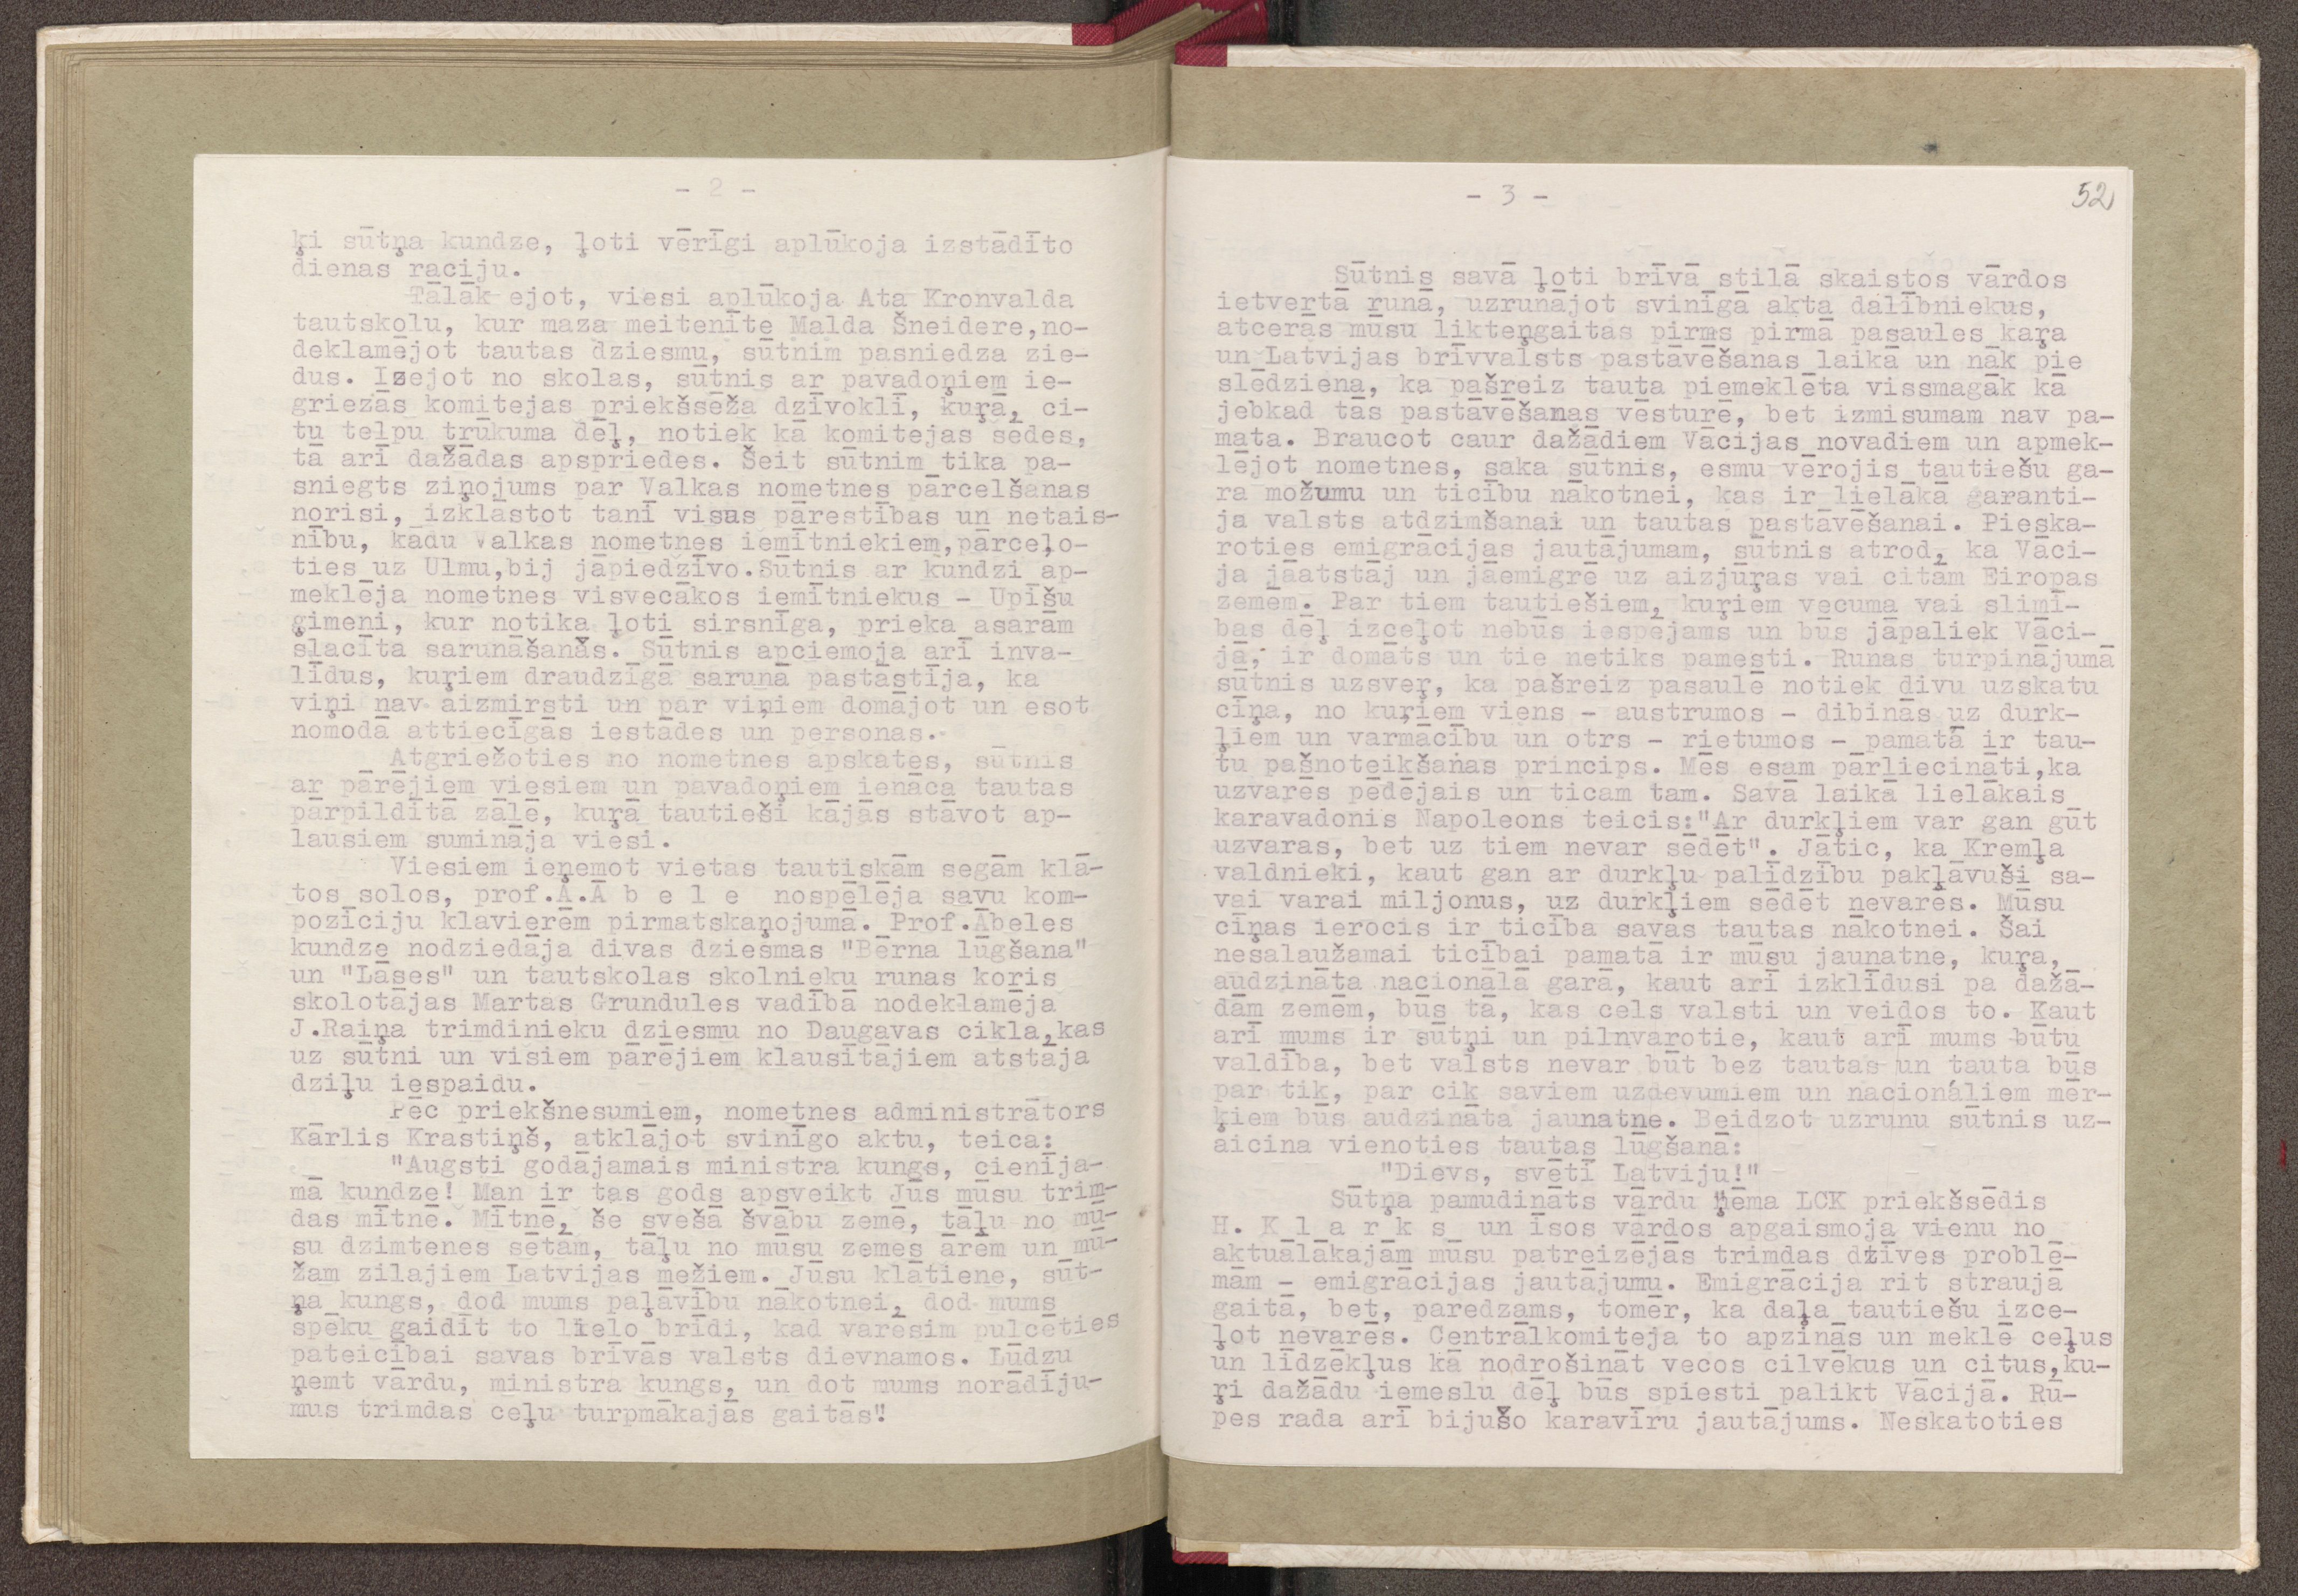 - 2 -
ķi sūtņa kundze, ļoti vērīgi aplūkoja izstādīto
dienas rāciju.
Tālāk ejot, viesi aplūkoja Ata Kronvalda
tautskolu, kur maza meitenīte Malda Šneidere,no-
deklamējot tautas dziesmu, sūtnim pasniedza zie-
dus. Izejot no skolas, sūtnis ar pavadoņiem ie-
griezās komitejas priekšsēža dzīvoklī, kuŗā, ci-
tu telpu trūkuma dēļ, notiek kā komitejas sēdes,
tā arī dažādas apspriedes. Šeit sūtnim tika pa-
sniegts ziņojums par Valkas nometnes pārcelšanas
norisi, izklāstot tanī visas pārestības un netais-
nību, kādu Valkas nometnes iemītniekiem,pārceļo-
ties uz Ulmu,bij jāpiedzīvo.Sūtnis ar kundzi ap-
meklēja nometnes visvecākos iemītniekus - Upīšu
ģimeni, kur notika ļoti sirsnīga, prieka asarām
slacīta sarunāšanās. Sūtnis apciemoja arī inva-
līdus, kuŗiem draudzīgā sarunā pastāstīja, ka
viņi nav aizmirsti un par viņiem domājot un esot
nomodā attiecīgās iestādes un personas.
Atgriežoties no nometnes apskates, sūtnis
ar pārējiem viesiem un pavadoņiem ienāca tautas
pārpildītā zālē, kuŗā tautieši kājās stāvot ap-
lausiem sumināja viesi.
Viesiem ieņemot vietas tautiskām segām klā-
tos solos, prof.Ā.Ā b e l e nospēlēja savu kom-
pozīciju klavierēm pirmatskaņojumā. Prof.Ābeles
kundze nodziedāja divas dziesmas "Bērna lūgšana"
un "Lāses" un tautskolas skolnieku runas koris
skolotājas Martas Grundules vadībā nodeklamēja
J.Raiņa trimdinieku dziesmu no Daugavas cikla,kas
uz sūtni un visiem pārējiem klausītājiem atstāja
dziļu iespaidu.
Pēc priekšnesumiem, nometnes administrātors
Kārlis Krastiņš, atklājot svinīgo aktu, teica:
"Augsti godājamais ministra kungs, cienīja-
mā kundze! Man ir tas gods apsveikt Jūs mūsu trim-
das mītnē. Mītnē, še svešā švābu zemē, tāļu no mū-
su dzimtenes sētām, tāļu no mūsu zemes ārēm un mū-
žam zilajiem Latvijas mežiem. Jūsu klātiene, sūt-
ņa kungs, dod mums paļāvību nākotnei, dod mums
spēku gaidīt to lielo brīdi, kad varēsim pulcēties
pateicībai savas brīvās valsts dievnamos. Lūdzu
ņemt vārdu, ministra kungs, un dot mums norādīju-
mus trimdas ceļu turpmākajās gaitās"!
- 3 -
52
Sūtnis savā ļoti brīvā stilā skaistos vārdos
ietvertā runā, uzrunājot svinīgā akta dalībniekus,
atcerās mūsu likteņgaitas pirms pirmā pasaules kaŗa
un Latvijas brīvvalsts pastāvēšanas laikā un nāk pie
slēdziena, ka pašreiz tauta piemeklēta vissmagāk kā
jebkad tās pastāvēšanas vēsturē, bet izmisumam nav pa-
mata. Braucot caur dažādiem Vācijas novadiem un apmek-
lējot nometnes, saka sūtnis, esmu vērojis tautiešu ga-
ra možumu un ticību nākotnei, kas ir lielākā garanti-
ja valsts atdzimšanai un tautas pastāvēšanai. Pieska-
roties emigrācijas jautājumam, sūtnis atrod, ka Vāci-
ja jāatstāj un jāemigrē uz aizjūŗas vai citām Eiropas
zemēm. Par tiem tautiešiem, kuŗiem vecuma vai slimī-
bas dēļ izceļot nebūs iespējams un būs jāpaliek Vāci-
jā, ir domāts un tie netiks pamesti. Runas turpinājumā
sūtnis uzsveŗ, ka pašreiz pasaulē notiek divu uzskatu
cīņa, no kuŗiem viens - austrumos - dibinās uz durk-
ļiem un varmācību un otrs - rietumos - pamatā ir tau-
tu pašnoteikšanas princips. Mēs esam pārliecināti,ka
uzvarēs pēdējais un ticam tam. Savā laikā lielākais
karavadonis Napoleons teicis:"Ar durkļiem var gan gūt
uzvaras, bet uz tiem nevar sēdēt". Jātic, ka Kremļa
valdnieki, kaut gan ar durkļu palīdzību pakļāvuši sa-
vai varai miljonus, uz durkļiem sēdēt nevarēs. Mūsu
cīņas ierocis ir ticība savas tautas nākotnei. Šai
nesalaužamai ticībai pamatā ir mūsu jaunatne, kuŗa,
audzināta nacionālā garā, kaut arī izklīdusi pa dažā-
dām zemēm, būs tā, kas cels valsti un veidos to. Kaut
arī mums ir sūtņi un pilnvarotie, kaut arī mums būtu
valdība, bet valsts nevar būt bez tautas un tauta būs
par tik, par cik saviem uzdevumiem un nacionáliem mēr-
ķiem būs audzināta jaunatne. Beidzot uzrunu sūtnis uz-
aicina vienoties tautas lūgšanā:
"Dievs, svētī Latviju!"
Sūtņa pamudināts vārdu ņēma LCK priekšsēdis
H. K l a r k s un īsos vārdos apgaismoja vienu no
aktuālākajām mūsu patreizējās trimdas dzīves problē-
mām - emigrācijas jautājumu. Emigrācija rit straujā
gaitā, bet, paredzams, tomēr, ka daļa tautiešu izce-
ļot nevarēs. Centrālkomiteja to apzinās un meklē ceļus
un līdzekļus kā nodrošināt vecos cilvēkus un citus,ku-
ŗi dažādu iemeslu dēļ būs spiesti palikt Vācijā. Rū-
pes rada arī bijušo karavīru jautājums. Neskatoties